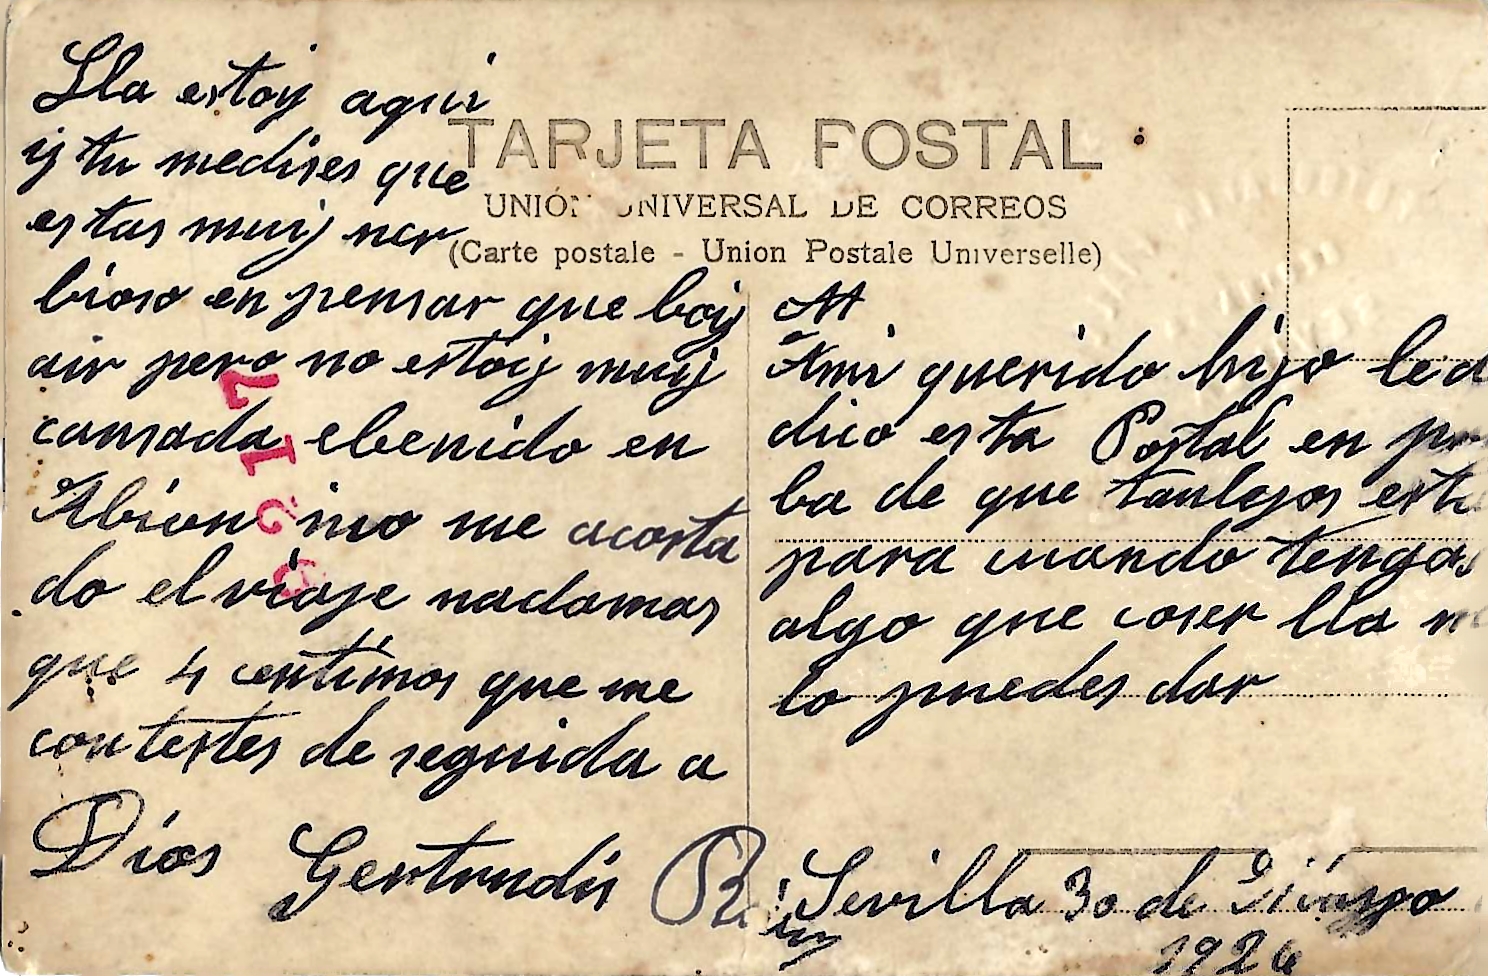 Lla estoy aqui
y tu medises que
estas muy ner
bioso en pensar que boy
air pero no estoy muy
cansada ebenido en
Abion ino me acosta
do el viaje nadamas
que 4 centimos que me
contestes de seguida a
Dios Gertrudis
TARJETA POSTAL
UNIÓN UNIVERSAL DE CORREOS
(Carte postale - Union Postale Universelle)
Ami querido hijo le d
dico esta Postal en pr
ba de que tanlejos est
para cuando tengas
algo que coser lla
lo puedes dar
Sevilla 30 de
192